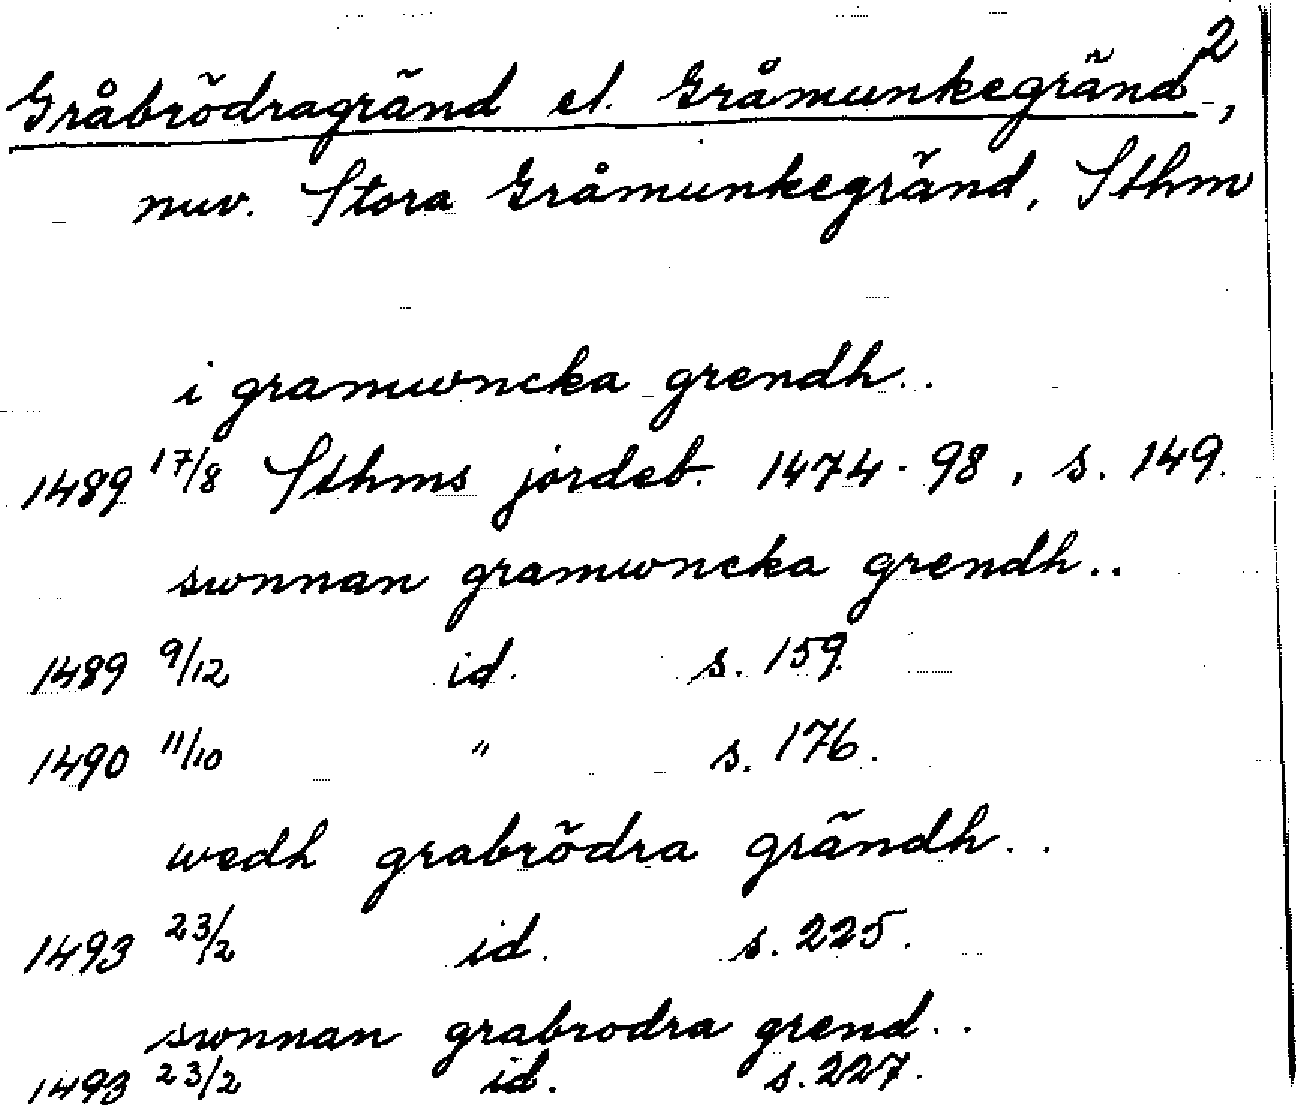 2
Gråbrödragränd el. Gråmunkegränd,
nuv. Stora Gråmunkegränd, Sthm
i gramwncka grendh..
1489 17/8 Sthms jordeb. 1474-98, s. 149.
swnnan gramwncka grendh..
1489 9/12 id. s. 159.
1490 11/10 " s. 176.
wedh grabrödra grändh..
1493 23/2 id. s. 225.
swnnan grabrodra grend..
1493 23/2 id. s. 227.